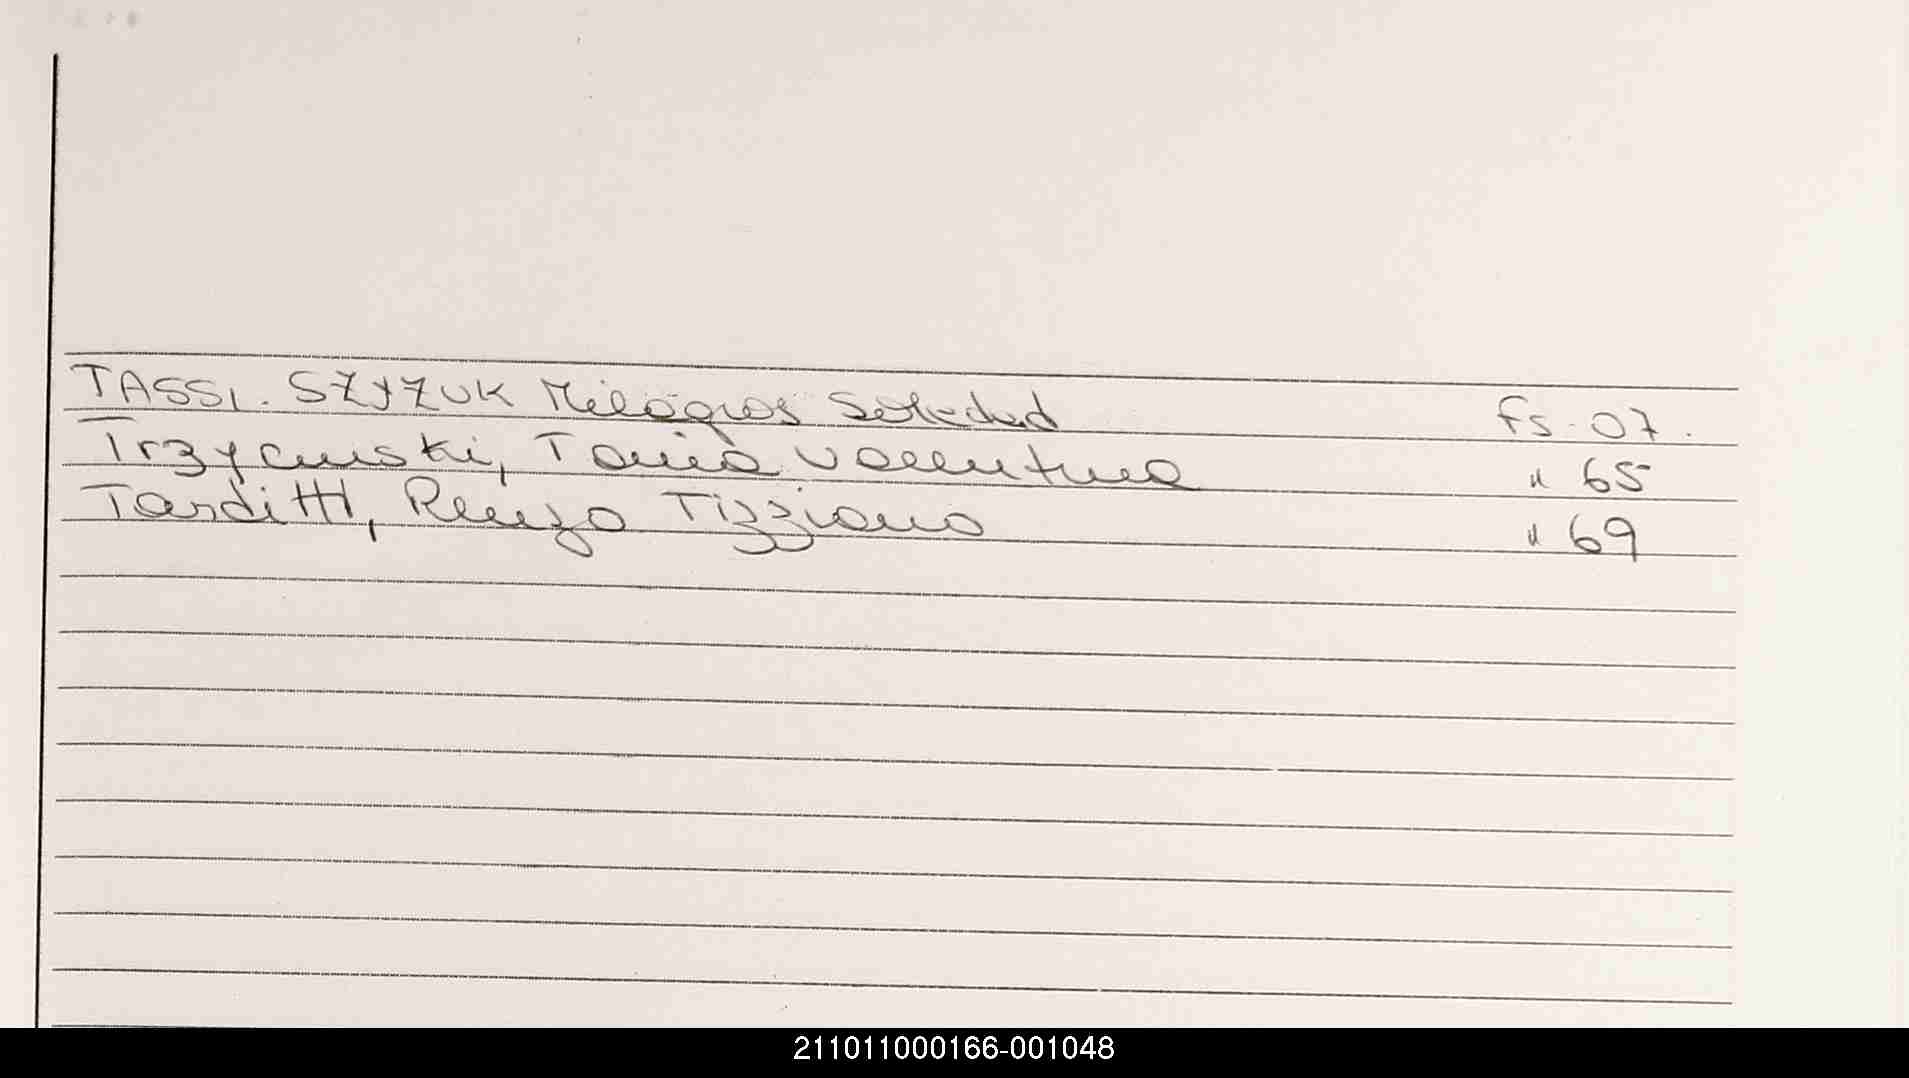 TASSI. SZYZUK Milagros Soledad Fs. 07.
Trzycinski, Tania Valentina " 65
Tarditti, Renzo Tizziano " 69
211011000166-001048